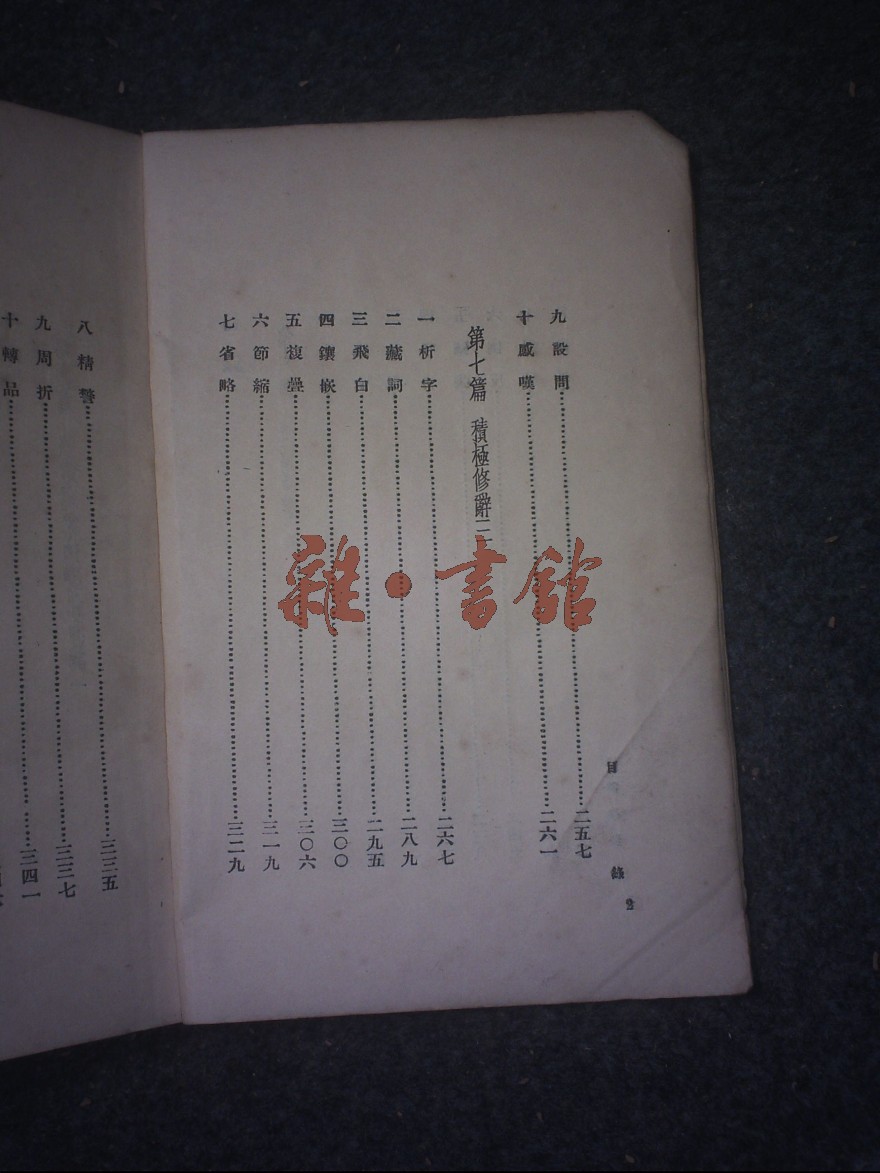 九設問……二五七
十感嘆……二六一
第七篇 積極修辭三
一析字……二六七
二藏詞……二八九
三飛白……二九五
四鑲嵌……三〇〇
五複疊……三〇六
六節縮……三一九
七省略……三二九
目錄
八精警……三三五
九周折……三三七
十轉品……三四一
雜·書館